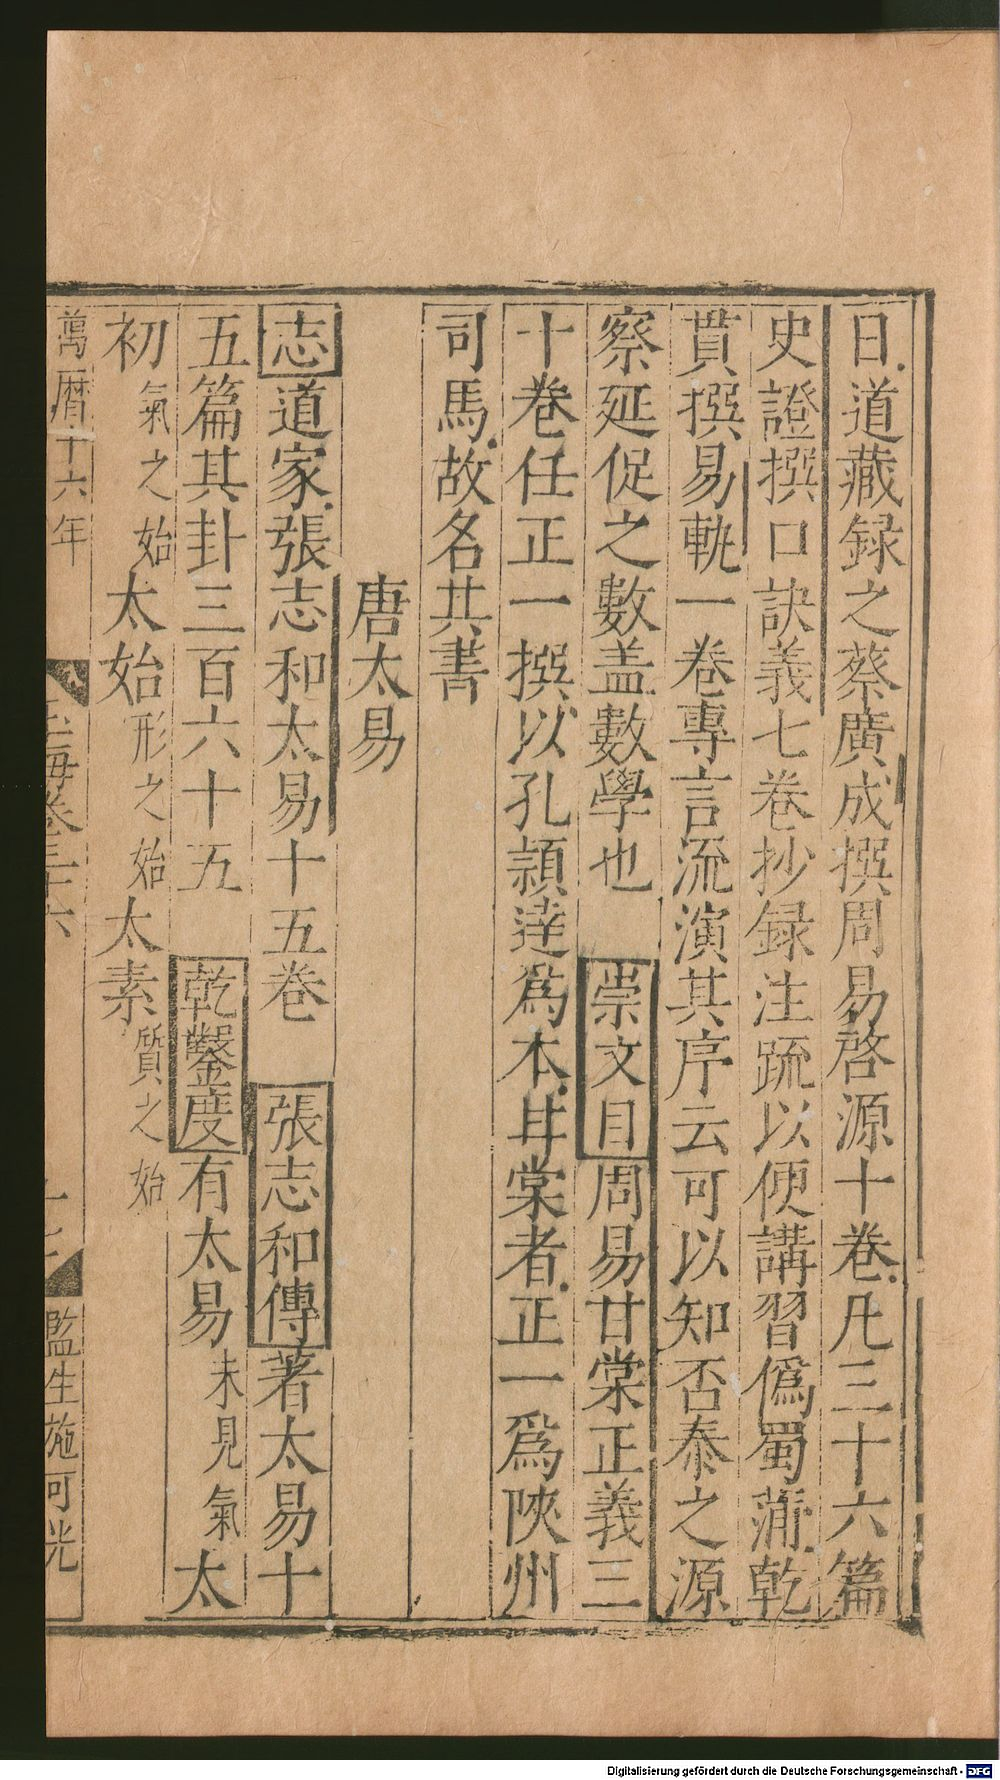 日道藏録之蔡廣成撰周易啓源十卷凡三十六篇
史證撰口訣義七卷抄録注䟽以便講習僞蜀蒲乾
貫撰易軌一卷專言流演其序云可以知否泰之源
察延促之數盖數學也　崇文目周易甘棠正義三
十卷任正一撰以孔頴逹爲本甘棠者正一爲陜州
司馬故名其書
唐太易
志道家張志和太易十五卷　張志和傳著太易十
五篇其卦三百六十五　乾鑿度有太易未見氣太
初氣之始太始形之始太素質之始
萬曆十六年　玉海卷三十六　監生施可光
Digitalisierung gefördert durch die Deutsche Forschungsgemeinschaft - DFG